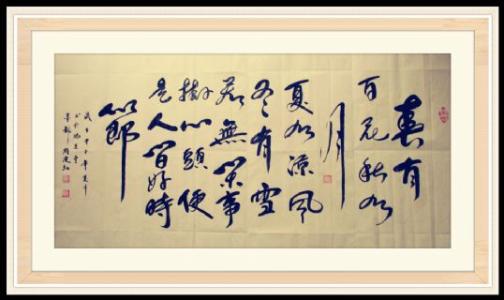 春有
百花秋有
月
夏有涼風
冬有雪
若無閑事
掛心頭便
是人間好時
節